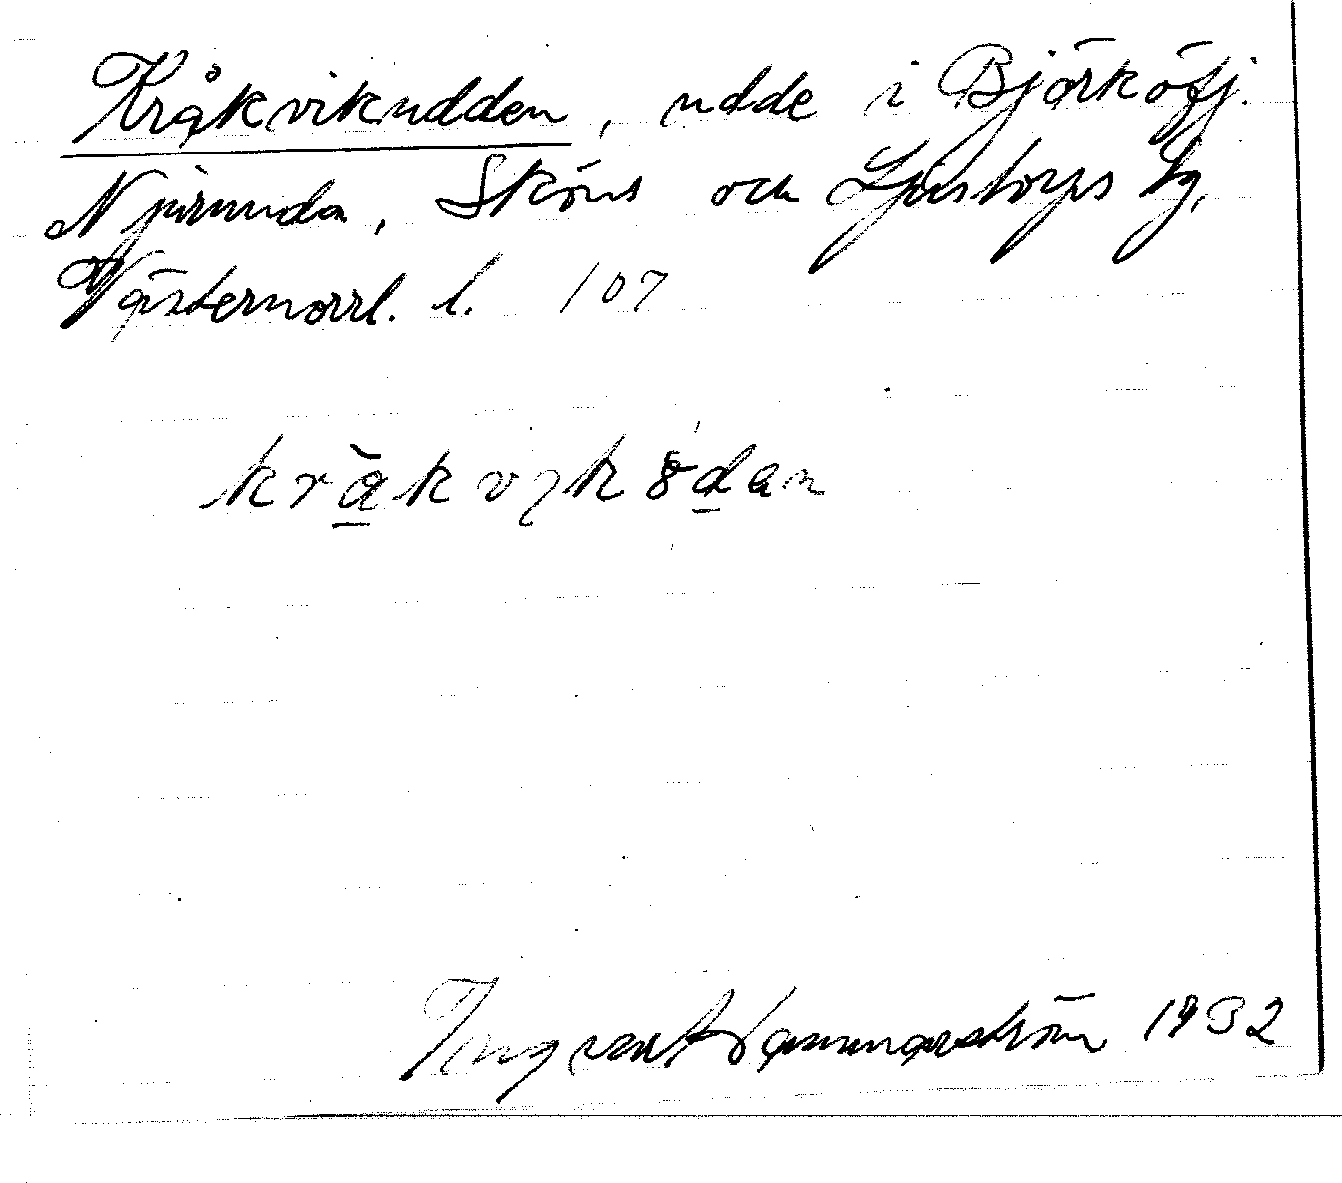 Kråkvikudden, udde i Björköfj.
Njurunda, Sköns och Ljustorps tg,
Västernorrl. l. 107
kràkvıkȣdan
Ingvar Hammarström 1932